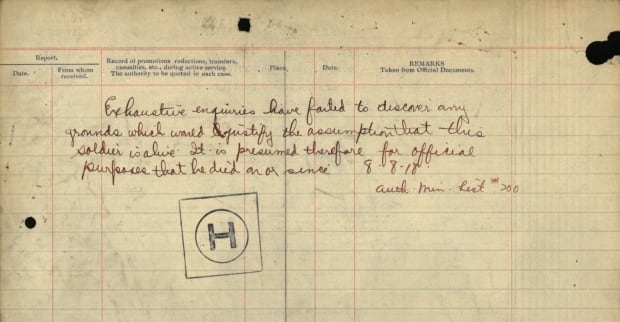 Report.
Date.
From whom received.
Record of promotions reductions, transfers,
casualties, etc., during active service.
The authority to be quoted in each case.
Place.
Date.
REMARKS
Taken from Official Documents.
Exhaustive enquiries have failed to discover any
grounds which would justify the assumption that this
soldier is alive. It is presumed therefore for official
purposes that he died on or since 8-8-18
auth. Min. List # 200
H